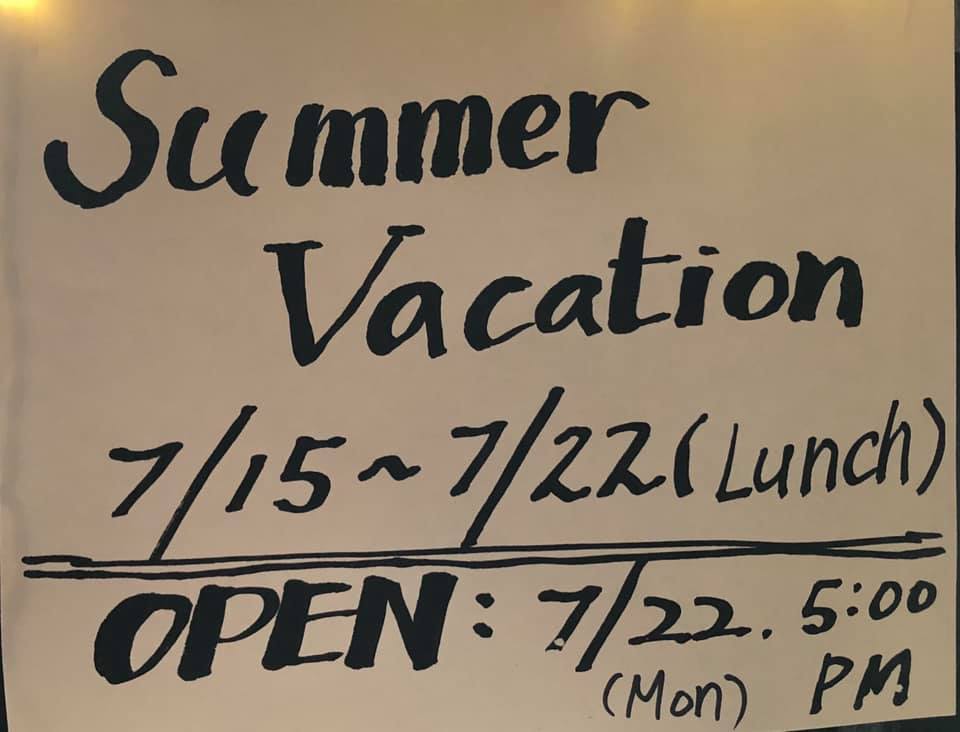 Summer
Vacation
7/15~7/22(Lunch)
OPEN: 7/22. 5:00
(Mon) PM